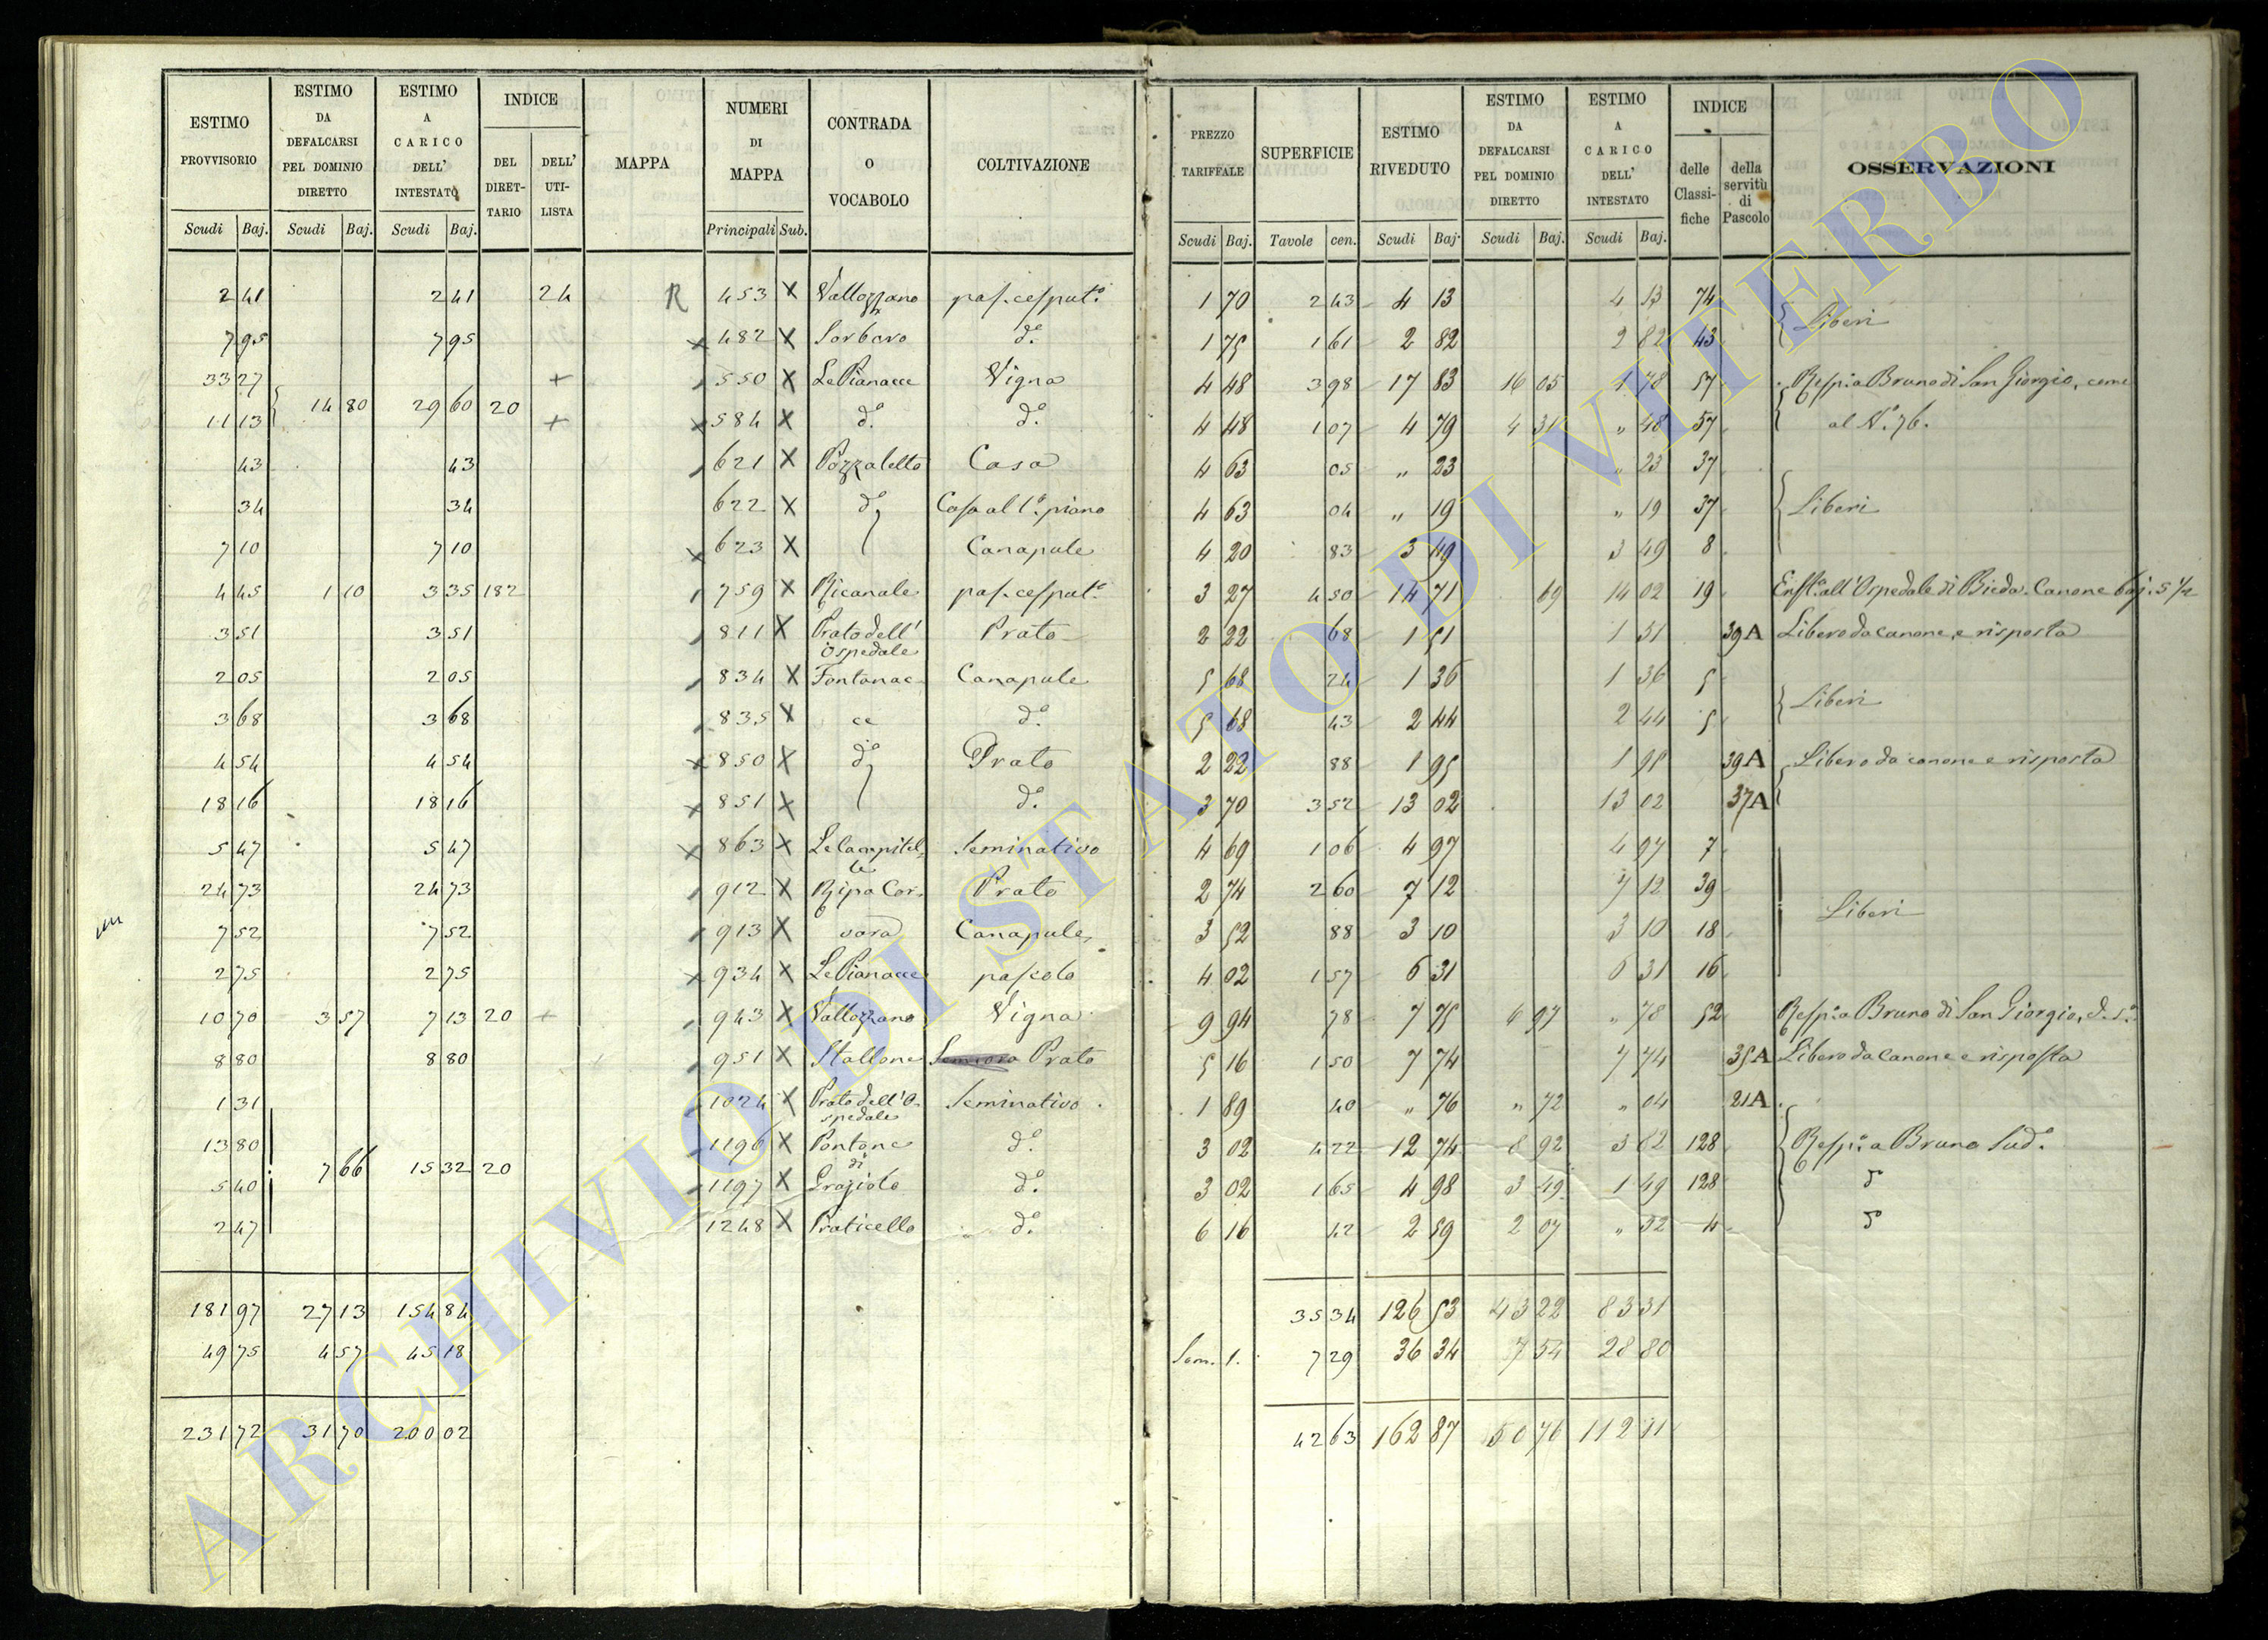 ESTIMO PROVVISORIO | ESTIMO DA DEFALCARSI PEL DOMINIO DIRETTO | ESTIMO A CARICO DELL' INTESTATO | INDICE DEL DIRETTARIO | DELL' UTILISTA | MAPPA | NUMERI DI MAPPA | CONTRADA O VOCABOLO | COLTIVAZIONE | PREZZO TARIFFALE | SUPERFICIE | ESTIMO RIVEDUTO | ESTIMO DA DEFALCARSI PEL DOMINIO DIRETTO | ESTIMO A CARICO DELL' INTESTATO | INDICE delle Classifiche | della servitù di Pascolo | OSSERVAZIONI
Scudi Baj. Scudi Baj. Scudi Baj. Principali Sub. Scudi Baj. Tavole cen. Scudi Baj. Scudi Baj. Scudi Baj.
2 41 2 41 24 R 453 X Vallozzano pas. cesput.o 1 70 2 43 4 13 4 13 74 Liberi
7 95 7 95 482 X Sorbaro d.o 1 75 1 61 2 82 2 82 43
33 27 + 550 X Le Pianacce Vigna 4 48 3 98 17 83 16 05 1 78 57 Resp: a Bruno di San Giorgio, come
11 13 14 80 29 60 20 + 584 X d.o d.o 4 48 1 07 4 79 4 31 " 48 57 al N.o 76.
43 43 621 X Pozzaletto Casa 4 63 05 " 23 " 23 37
34 34 622 X d.o Casa al 1.o piano 4 63 04 " 19 " 19 37 Liberi
7 10 7 10 623 X Canapule 4 20 83 3 49 3 49 8
4 45 1 10 3 35 182 759 X Ricanale pas. cesput.o 3 27 4 50 14 71 69 14 02 19 Enft.o all'Ospedale di Bieda. Canone baj. 5 1/2
3 51 3 51 811 X Prato dell' Prato 2 22 68 1 51 1 51 39 A Libero da canone, e risposta
Ospedale
2 05 2 05 834 X Fontanac- Canapule 5 68 24 1 36 1 36 5 Liberi
3 68 3 68 835 X ce d.o 5 68 43 2 44 2 44 5
4 54 4 54 850 X d.o Prato 2 22 88 1 95 1 95 39 A Libero da canone e risposta
18 16 18 16 851 X d.o 3 70 3 52 13 02 13 02 37 A
5 47 5 47 863 X Le Campitel- Seminativo 4 69 1 06 4 97 4 97 7
le
24 73 24 73 912 X Ripa Cor- Prato 2 74 2 60 7 12 7 12 39 Liberi
7 52 7 52 913 X vara Canapule 3 52 88 3 10 3 10 18
2 75 2 75 934 X Le Pianacce pascolo 4 02 1 57 6 31 6 31 16
10 70 3 57 7 13 20 + 943 X Vallozzano Vigna 9 94 78 7 75 6 97 " 78 52 Resp: a Bruno di San Giorgio, d. s.a
8 80 8 80 951 X Stallone Prato 5 16 1 50 7 74 7 74 35 A Libero da Canone e risposta
1 31 1024 X Prato dell'O- Seminativo 1 89 40 " 76 " 72 " 04 21 A
spedale
13 80 1196 X Pontone d.o 3 02 4 22 12 74 8 92 3 82 128 Resp: a Bruno Sud.o
7 66 15 32 20 di
5 40 1197 X Graziolo d.o 3 02 1 65 4 98 3 49 1 49 128 d.o
2 47 1248 X Praticello d.o 6 16 42 2 59 2 07 " 52 4 d.o
181 97 27 13 154 84 35 34 126 53 43 22 83 31
49 75 4 57 45 18 Som. 1. 7 29 36 34 7 54 28 80
231 72 31 70 200 02 42 63 162 87 50 76 112 11
ARCHIVIO DI STATO DI VITERBO